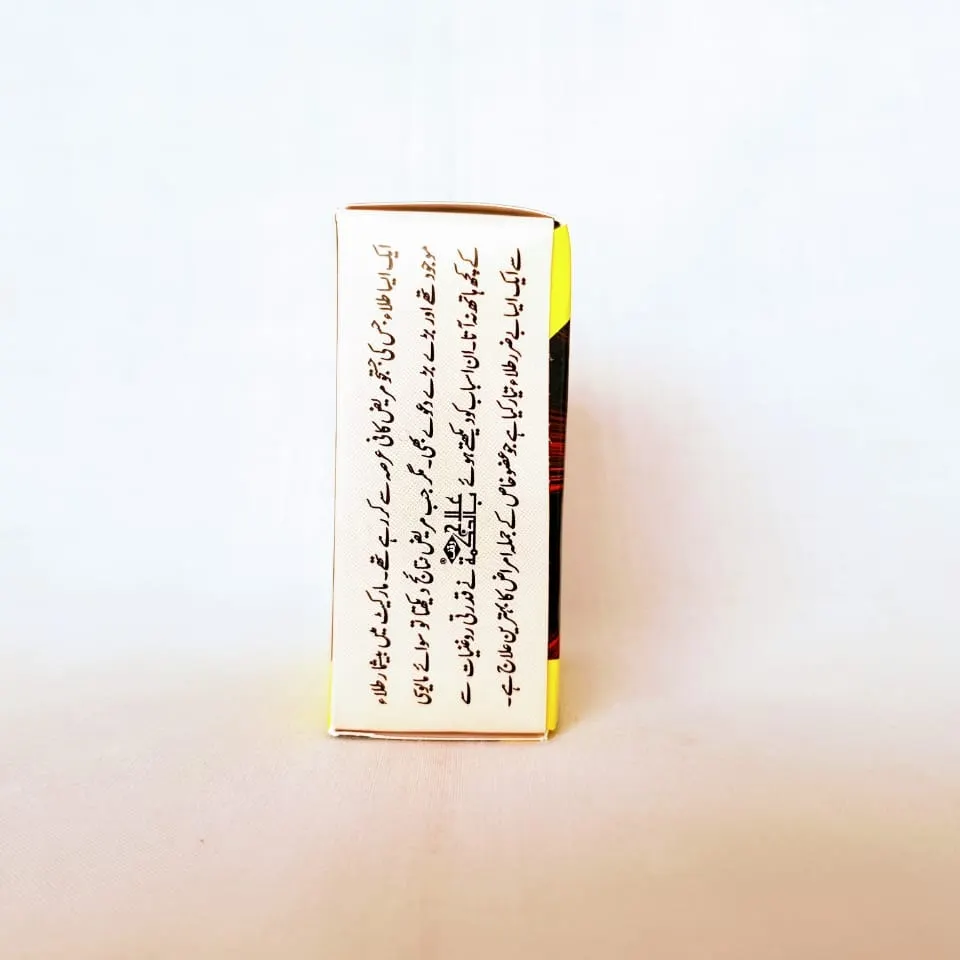 ایک ایسا طلاء جس کی جستجو مریض کافی عرصہ سے کر رہے تھے۔ مارکیٹ میں بیشمار طلاء
موجود تھے اور بڑے بڑے دعوے بھی۔ مگر جب مریض نتائج دیکھتا تو سوائے مایوسی
کے کچھ ہاتھ نہ آتا۔ ان اسباب کو دیکھتے ہوئے علاج بالحکمة نے قدرتی روغنیات سے
سے ایک ایسا بے ضرر طلاء تیار کیا ہے جو عضو خاص کے جملہ امراض کا بہترین علاج ہے۔